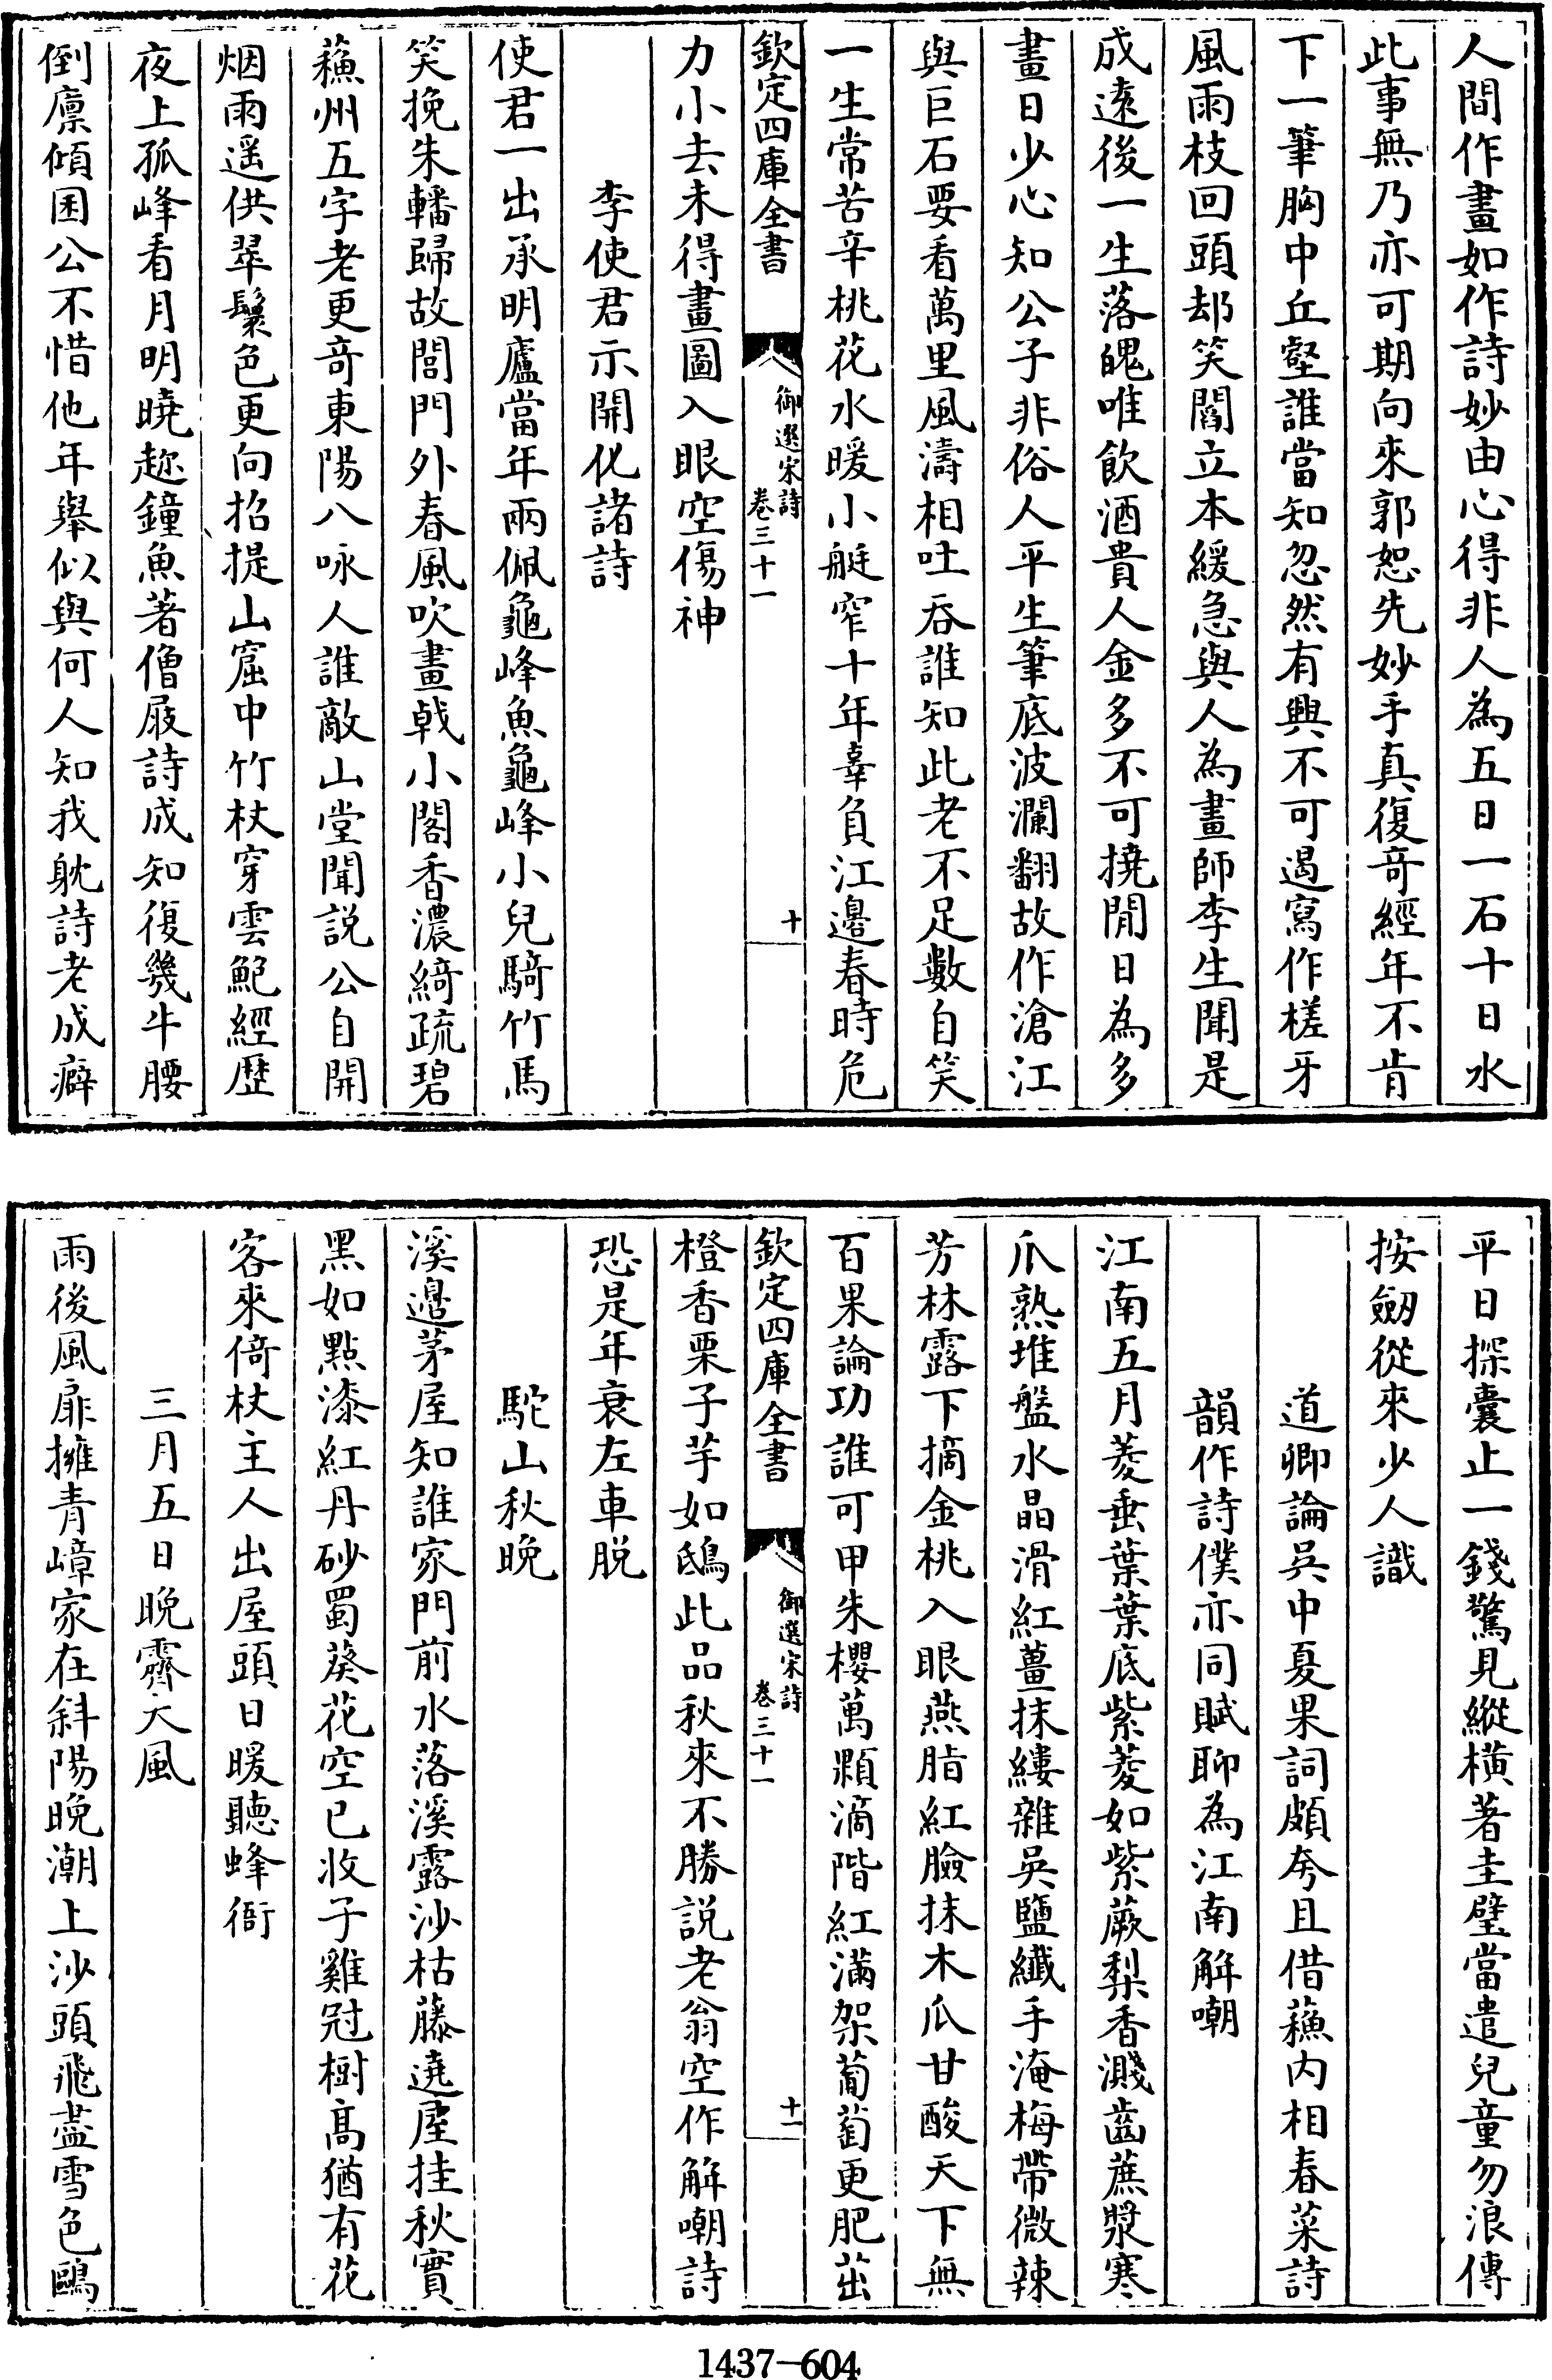 人間作畫如作詩妙由心得非人為五日一石十日水
此事無乃亦可期向來郭恕先妙手真復奇經年不肯
下一筆胸中丘壑誰當知忽然有興不可遏寫作槎牙
風雨枝回頭却笑閻立本緩急與人為畫師李生聞是
成逺後一生落魄唯飲酒貴人金多不可撓閒日為多
畫日少心知公子非俗人平生筆底波瀾翻故作滄江
與巨石要看萬里風濤相吐吞誰知此老不足數自笑
一生常苦辛桃花水暖小艇窄十年辜負江邊春時危
欽定四庫全書
御選宋詩
卷三十一
十
力小去未得畫圖入眼空傷神
李使君示開化諸詩
使君一出承明廬當年兩佩龜峰魚龜峰小兒騎竹馬
笑挽朱轓歸故閭門外春風吹畫㦸小閣香濃綺疏碧
蘓州五字老更竒東陽八咏人誰敵山堂聞説公自開
烟雨遥供翠鬟色更向招提山窟中竹杖穿雲飽經歴
夜上孤峰看月明曉趂鐘魚著僧屐詩成知復幾牛腰
倒廪傾囷公不惜他年舉似與何人知我躭詩老成癖
平日探囊止一錢驚見縱橫著圭璧當遣兒童勿浪傳
按劒從來少人識
道卿論吳中夏果詞頗夸且借蘓内相春菜詩
韻作詩僕亦同賦聊為江南解嘲
江南五月菱垂葉葉底紫菱如紫蕨梨香濺齒蔗漿寒
爪熟堆盤水晶滑紅薑抹縷雜吳鹽纎手淹梅帶微辣
芳林露下摘金桃入眼燕脂紅臉抹木瓜甘酸天下無
百果論功誰可甲朱櫻萬顆滴階紅滿架葡萄更肥茁
欽定四庫全書
御選宋詩
卷三十一
十一
橙香栗子芋如鴟此品秋來不勝説老翁空作解嘲詩
恐是年衰左車脱
駝山秋晚
溪邊茅屋知誰家門前水落溪露沙枯藤遶屋挂秋實
黑如點漆紅丹砂蜀葵花空已收子雞冠樹髙猶有花
客來倚杖主人出屋頭日暖聽蜂衙
三月五日晚霽大風
雨後風扉擁青嶂家在斜陽晚潮上沙頭飛盡雪色鷗
1437—604